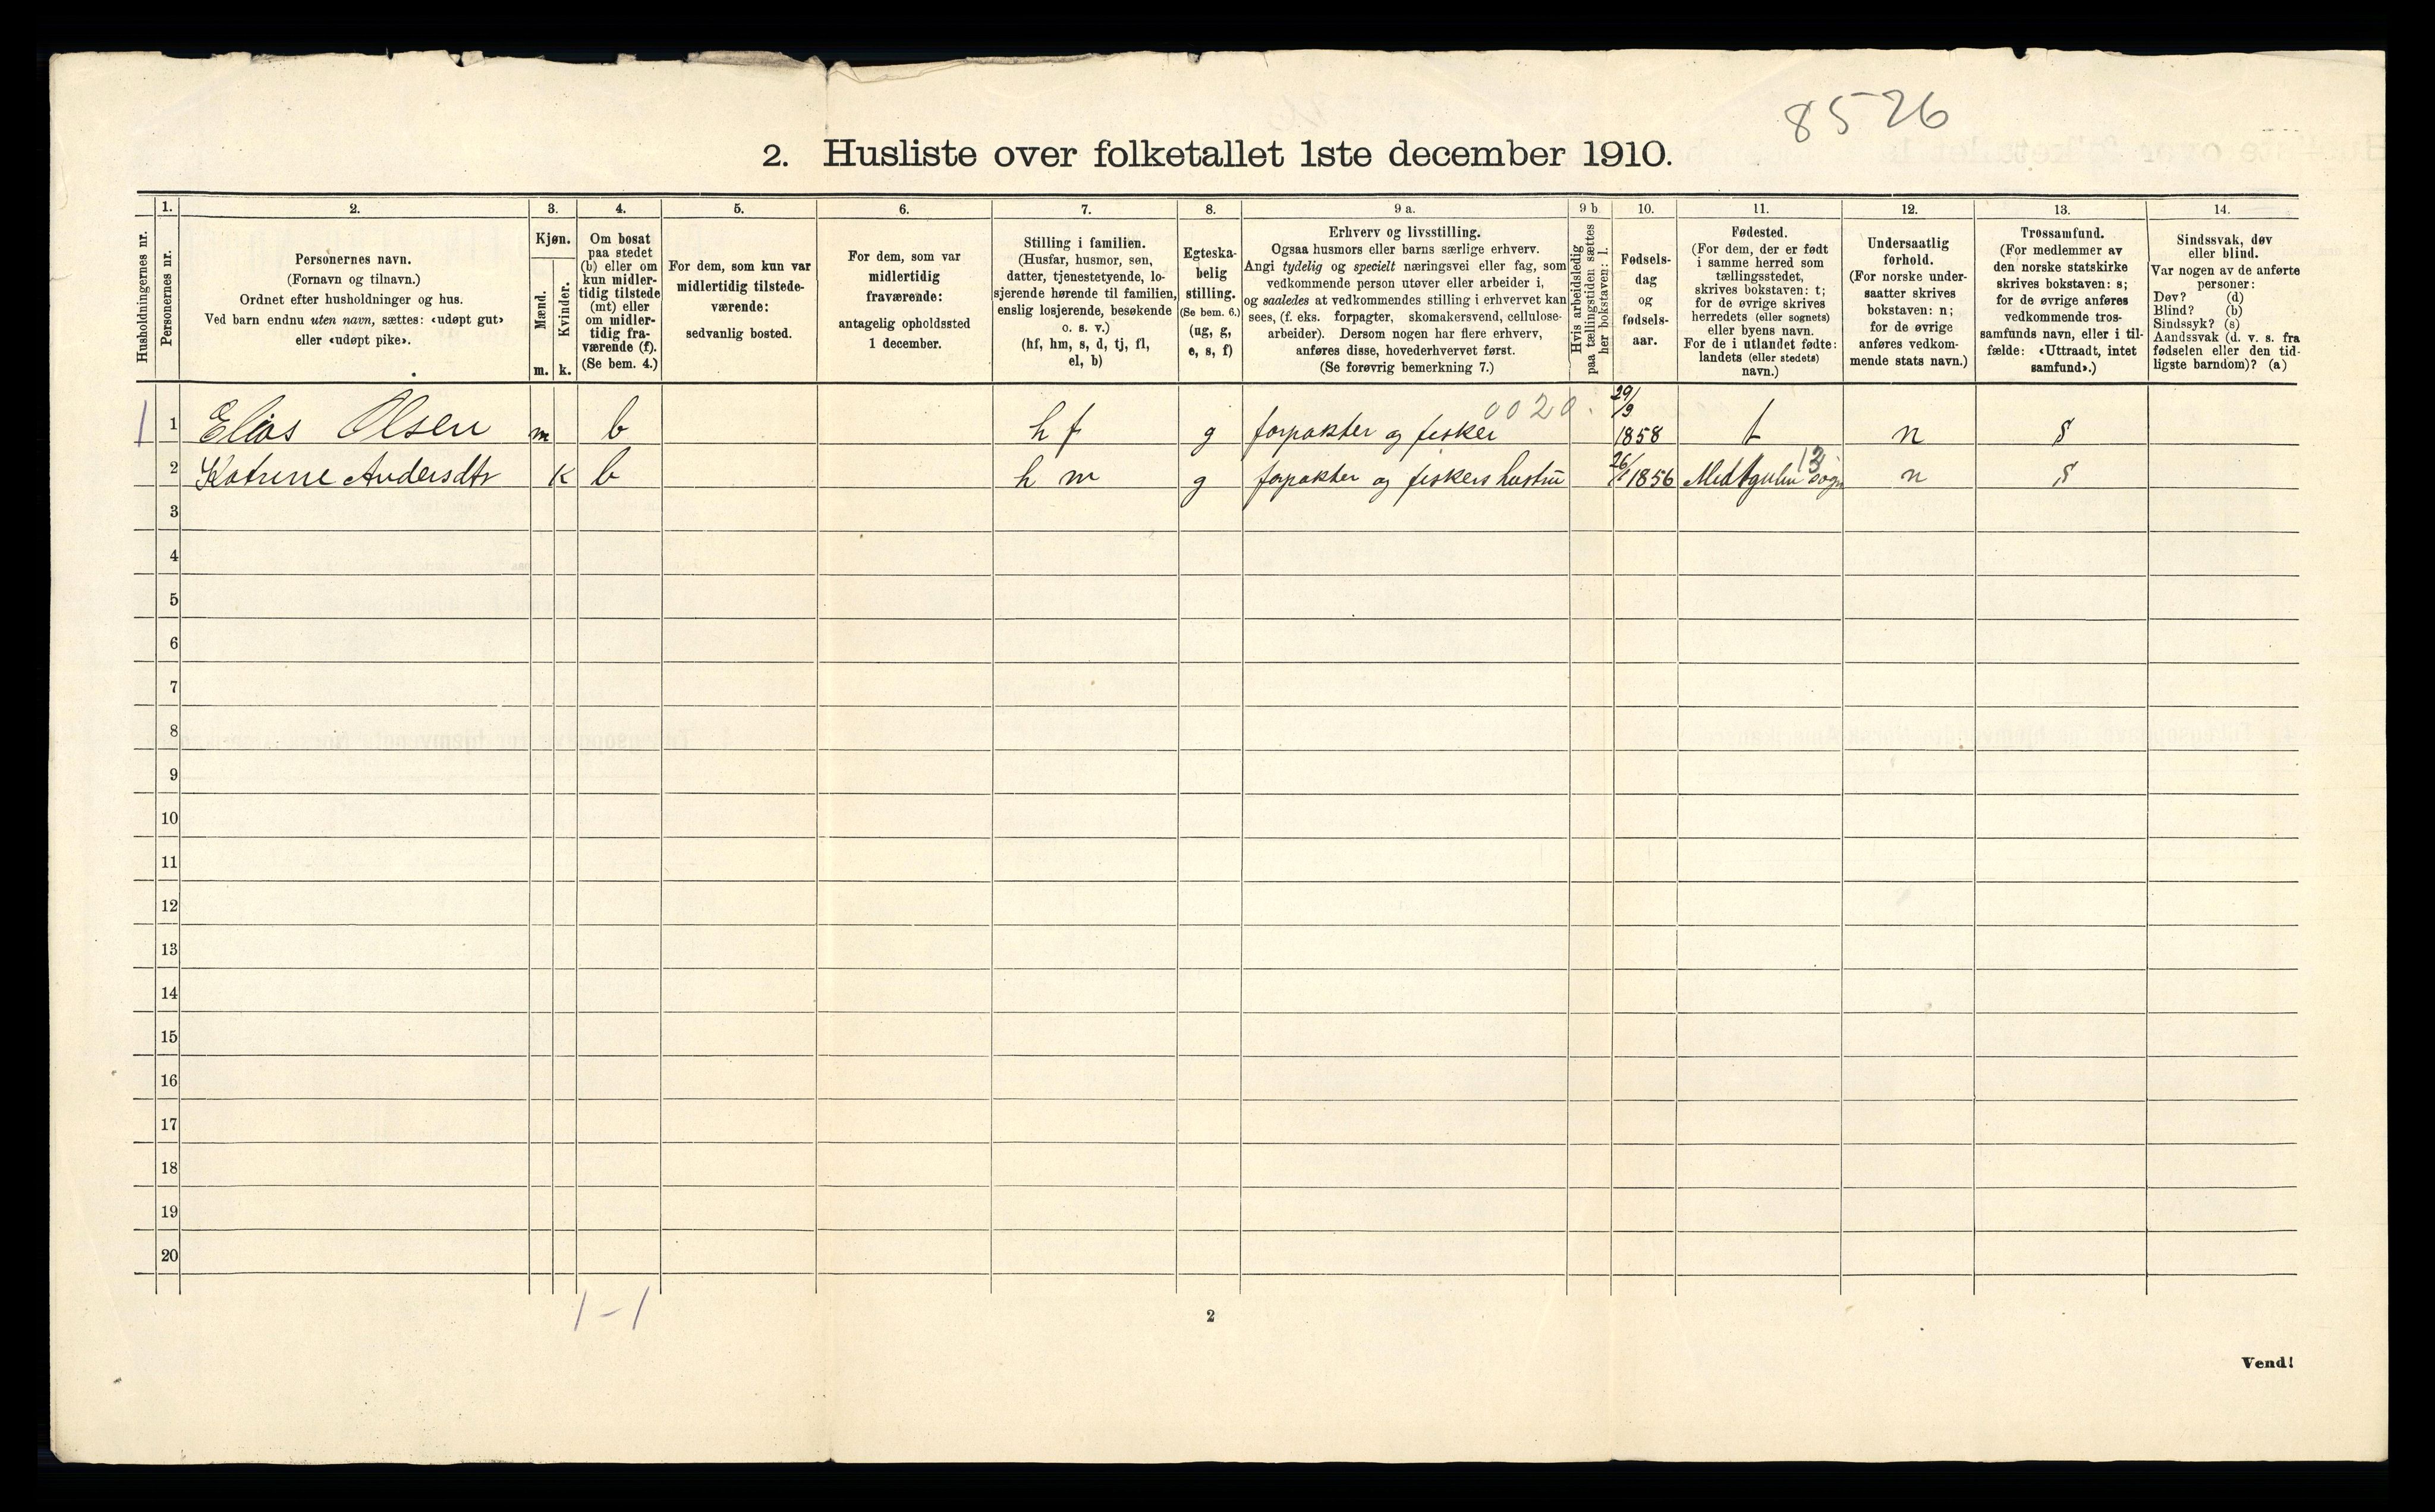 8526
2. Husliste over folketallet 1ste december 1910.
Husholdningernes nr.
1.
Personernes nr.
2.
Personernes navn.
(Fornavn og tilnavn.)
Ordnet efter husholdninger og hus.
Ved barn endnu uten navn, sættes: «udøpt gut»
eller «udøpt pike».
3.
Kjøn.
Mænd.
Kvinder.
m. k.
4.
Om bosat
paa stedet
(b) eller om
kun midler-
tidig tilstede
(mt) eller
om midler-
tidig fra-
værende (f).
(Se bem. 4.)
5.
For dem, som kun var
midlertidig tilstede-
værende:
sedvanlig bosted.
6.
For dem, som var
midlertidig
fraværende:
antagelig opholdssted
1 december.
7.
Stilling i familien.
(Husfar, husmor, søn,
datter, tjenestetyende, lo-
sjerende hørende til familien,
enslig losjerende, besøkende
o. s. v.)
(hf, hm, s, d, tj, fl,
el, b)
8.
Egteska-
belig
stilling.
(Se bem. 6.)
(ug, g,
e, s, f)
9 a.
Erhverv og livsstilling.
Ogsaa husmors eller barns særlige erhverv.
Angi tydelig og specielt næringsvei eller fag, som
vedkommende person utøver eller arbeider i,
og saaledes at vedkommendes stilling i erhvervet kan
sees, (f. eks. forpagter, skomakersvend, cellulose-
arbeider). Dersom nogen har flere erhverv,
anføres disse, hovederhvervet først.
(Se forøvrig bemerkning 7.)
9 b
Hvis arbeidsledig
paa tællingstiden sættes
her bokstaven: l.
10.
Fødsels-
dag
og
fødsels-
aar.
11.
Fødested.
(For dem, der er født
i samme herred som
tællingsstedet,
skrives bokstaven: t;
for de øvrige skrives
herredets (eller sognets)
eller byens navn.
For de i utlandet fødte:
landets (eller stedets)
navn.)
12.
Undersaatlig
forhold.
(For norske under-
saatter skrives
bokstaven: n;
for de øvrige
anføres vedkom-
mende stats navn.)
13.
Trossamfund.
(For medlemmer av
den norske statskirke
skrives bokstaven: s;
for de øvrige anføres
vedkommende tros-
samfunds navn, eller i til-
fælde: «Uttraadt, intet
samfund».)
14.
Sindssvak, døv
eller blind.
Var nogen av de anførte
personer:
Døv? (d)
Blind? (b)
Sindssyk? (s)
Aandssvak (d. v. s. fra
fødselen eller den tid-
ligste barndom)? (a)
1 1 Elias Olsen m b h f g forpakter og fisker 0020. 29/9 1858 t n s
2 Katrine Andersdtr k b h m g forpakter og fiskers hustru 1856 13 sogn n s
3
4
5
6
7
8
9
10
11
12
13
14
15
16
17
18
19
20
1-1
2
Vend!